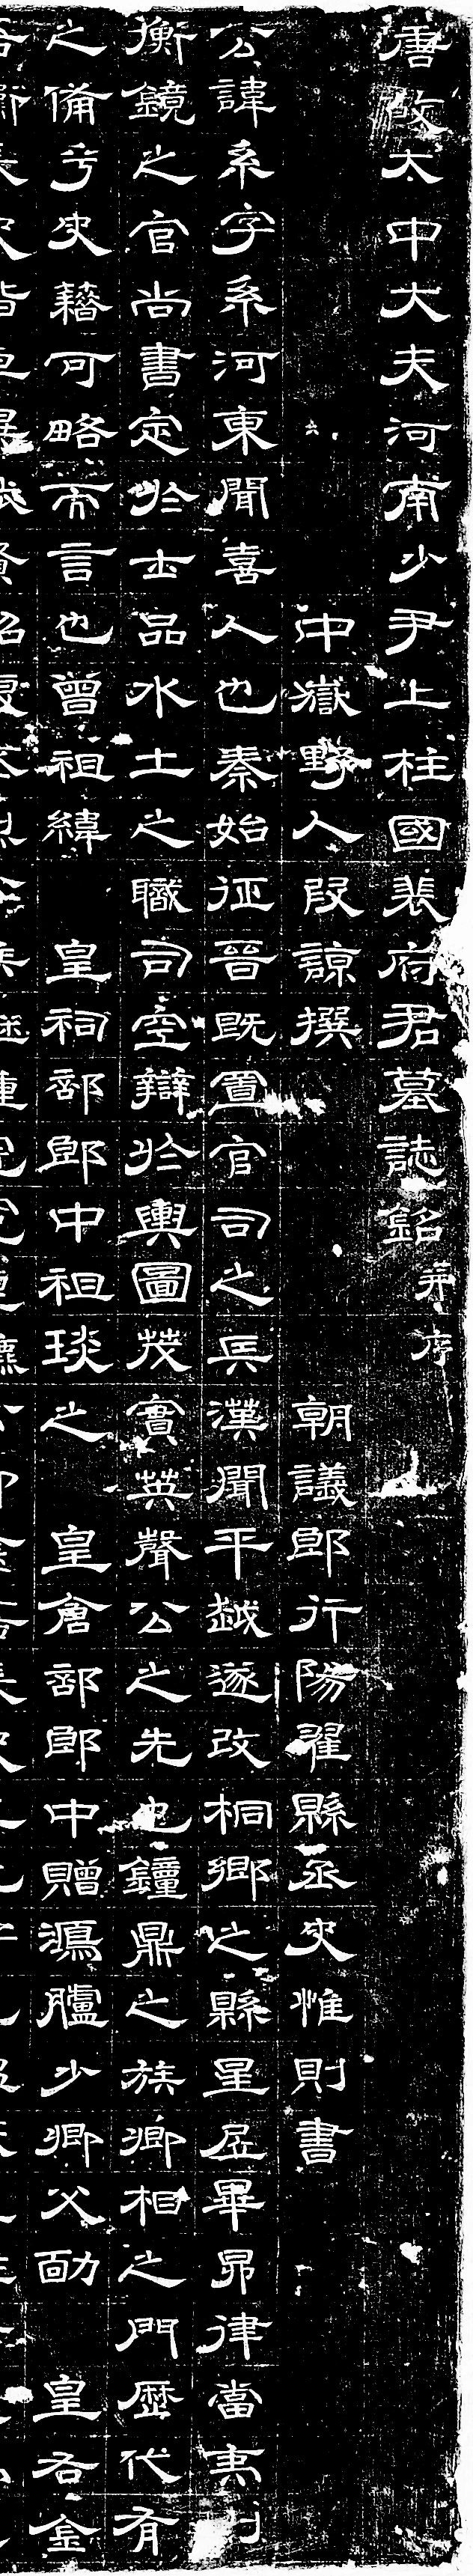 唐故太中大夫河南少尹上柱國裴府君墓誌銘并序
中嶽野人段諒撰 朝議郎行陽翟縣丞史惟則書
公諱系字系河東聞喜人也秦始征晉既置官司之兵漢聞平越遂改桐鄉之縣星居畢昴律當夷則
衡鏡之官尚書定於士品水土之職司空辯於輿圖茂實英聲公之先也鐘鼎之族卿相之門歷代有
之備乎史籍可略而言也曾祖緯 皇祠部郎中祖琰之 皇倉部郎中贈鴻臚少卿父勔 皇右金
吾衛長史皆